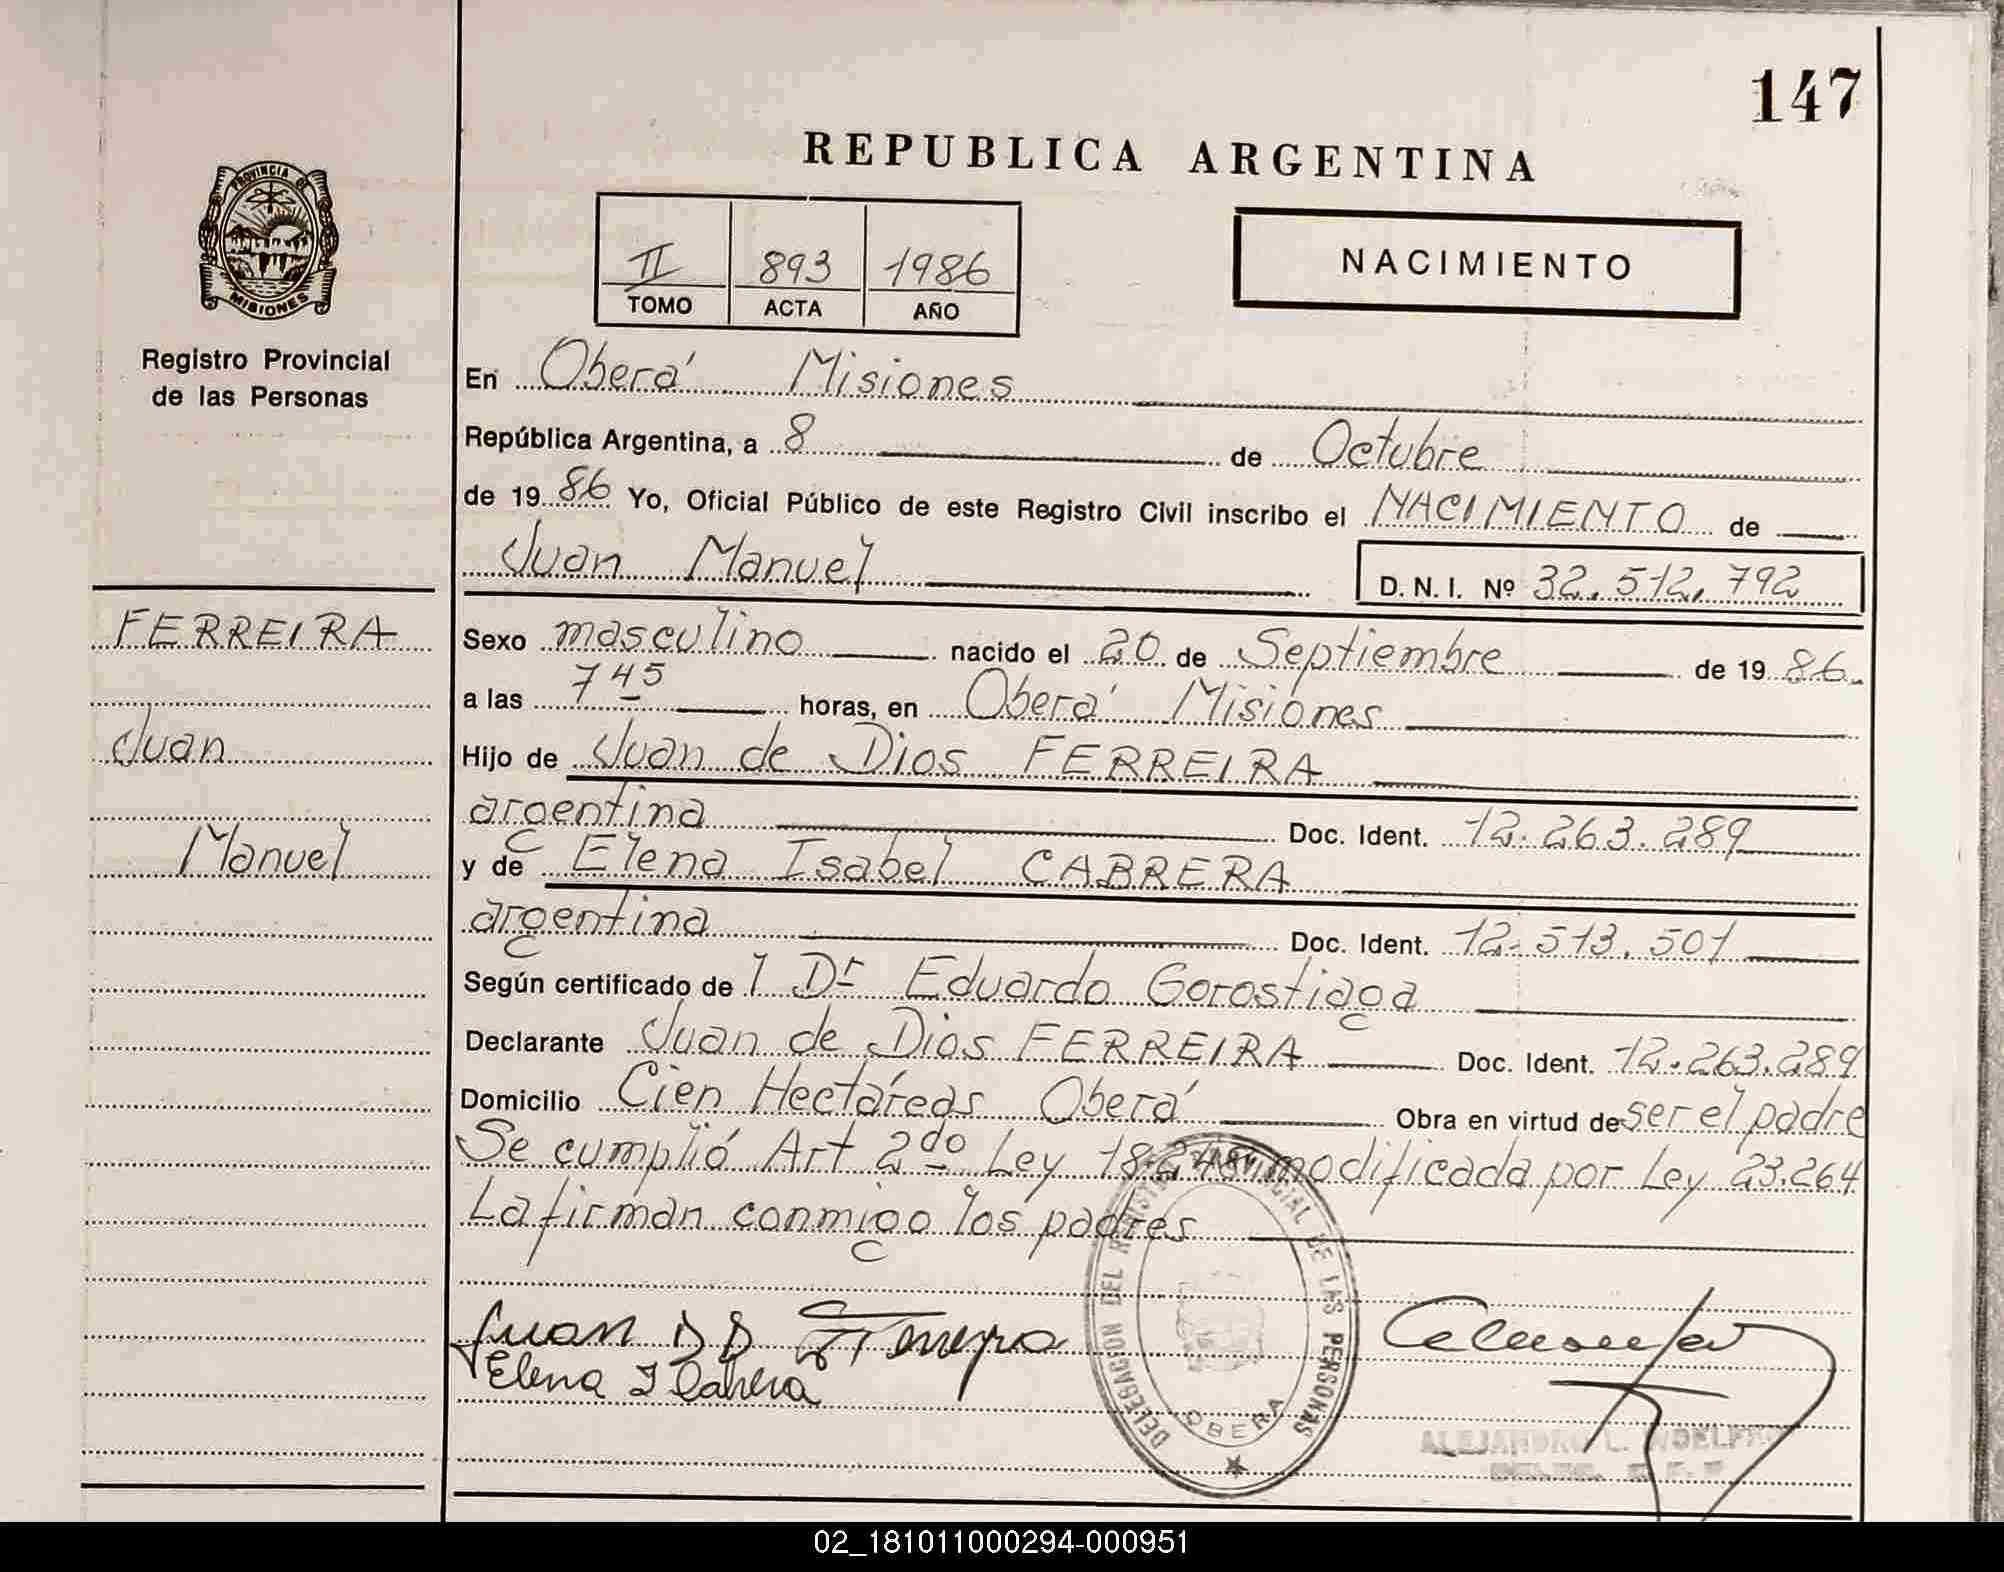 147
REPUBLICA ARGENTINA
PROVINCIA DE
MISIONES
Registro Provincial
de las Personas
II 893 1986
TOMO ACTA AÑO
NACIMIENTO
En Oberá Misiones
República Argentina, a 8 de Octubre
de 1986 Yo, Oficial Público de este Registro Civil inscribo el NACIMIENTO de
Juan Manuel
D. N. I. Nº 32.512.792
FERREIRA
Juan
Manuel
Sexo masculino nacido el 20 de Septiembre de 1986
a las 7 45 horas, en Oberá Misiones
Hijo de Juan de Dios FERREIRA
argentina Doc. Ident. 12.263.289
y de Elena Isabel CABRERA
argentina Doc. Ident. 12.513.501
Según certificado de l Dr Eduardo Gorostiaga
Declarante Juan de Dios FERREIRA Doc. Ident. 12.263.289
Domicilio Cien Hectáreas Oberá Obra en virtud de ser el padre
Se cumplió Art 2do Ley 18.248 modificada por Ley 23.264
La firman conmigo los padres
Juan D D Ferreira
Elena I Cabrera
DELEGACION DEL REGISTRO PROVINCIAL DE LAS PERSONAS
OBERA
ALEJANDRO L.
02_181011000294-000951